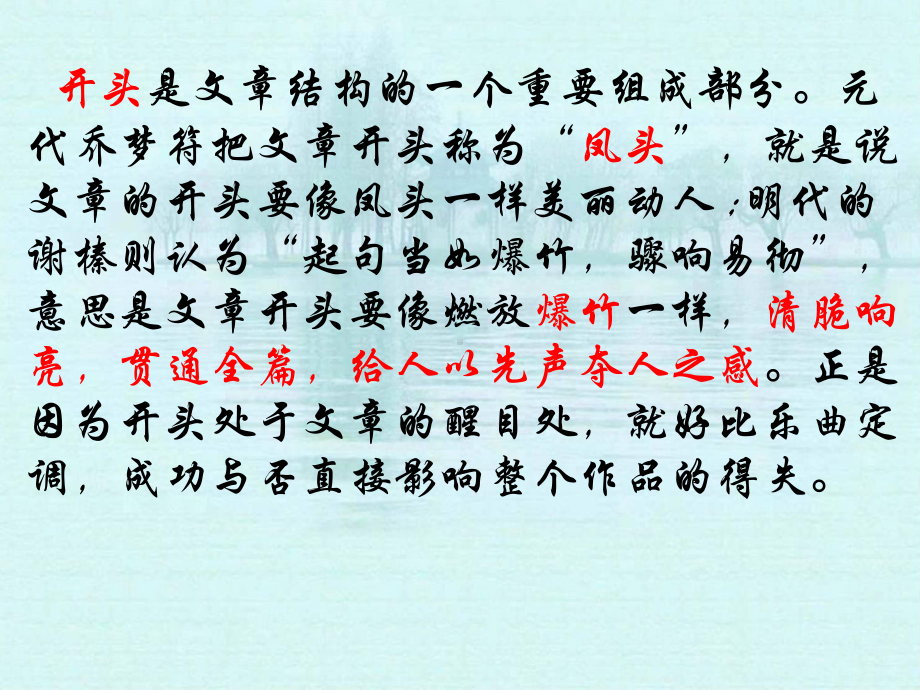 开头是文章结构的一个重要组成部分。元
代乔梦符把文章开头称为“凤头”，就是说
文章的开头要像凤头一样美丽动人;明代的
谢榛则认为“起句当如爆竹，骤响易彻”，
意思是文章开头要像燃放爆竹一样，清脆响
亮，贯通全篇，给人以先声夺人之感。正是
因为开头处于文章的醒目处，就好比乐曲定
调，成功与否直接影响整个作品的得失。